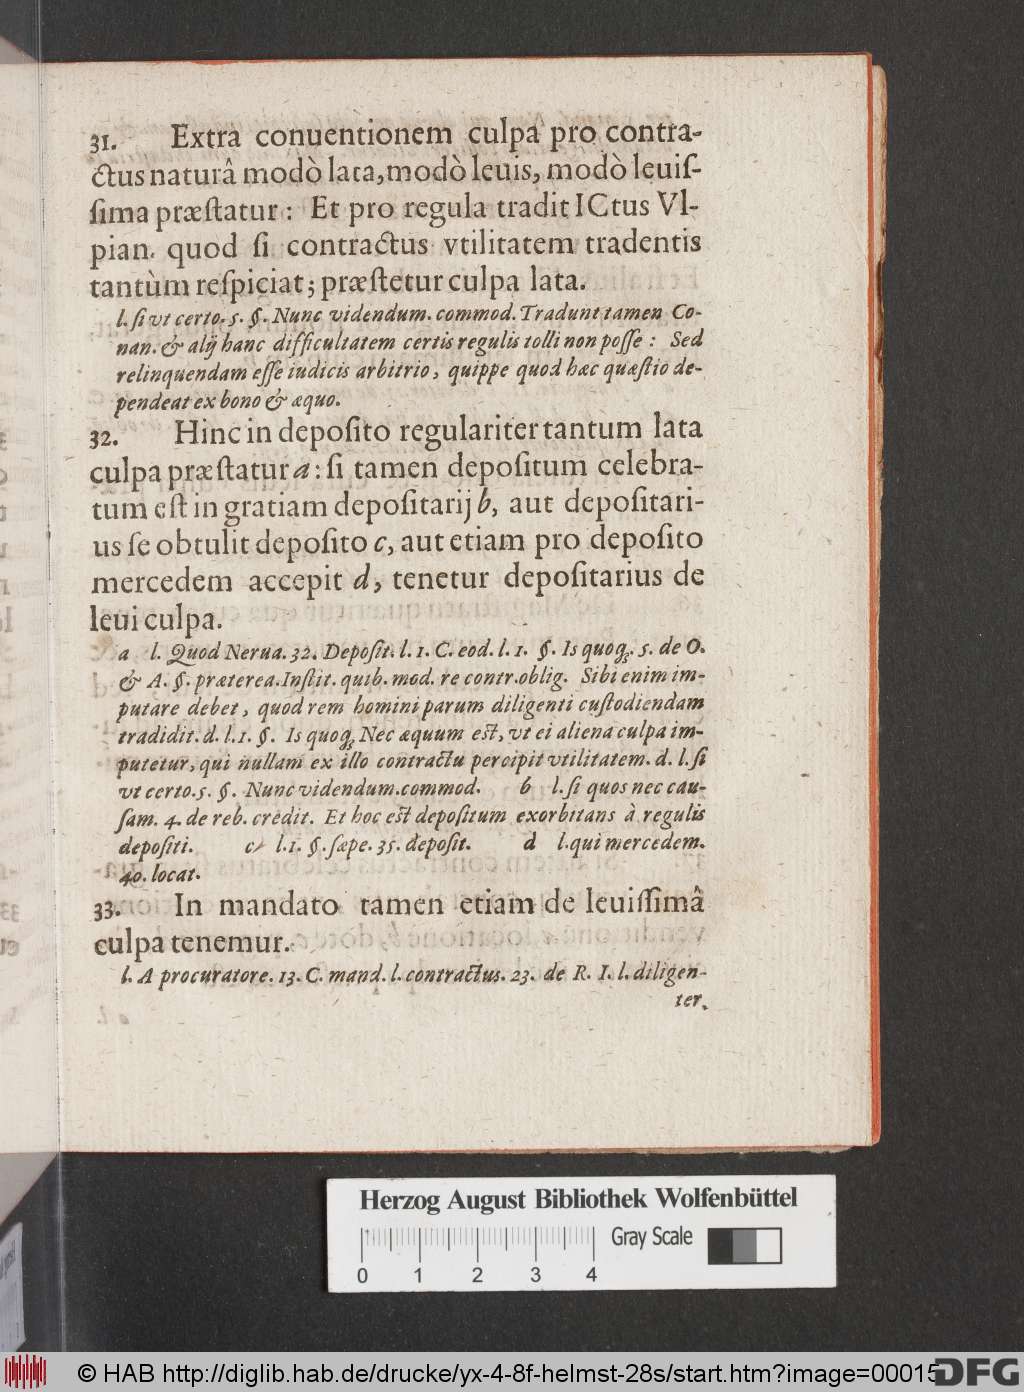 31. Extra conuentionem culpa pro contra-
ctus naturâ modò lata, modò leuis, modò leuiſ-
ſima præſtatur: Et pro regula tradit ICtus Vl-
pian. quod ſi contractus vtilitatem tradentis
tantùm reſpiciat; præſtetur culpa lata.
l. ſi vt certo. 5. §. Nunc videndum. commod. Tradunt tamen Co-
nan. & alij hanc difficultatem certis regulis tolli non poſſe: Sed
relinquendam eſſe iudicis arbitrio, quippe quod hæc quæſtio de-
pendeat ex bono & æquo.
32. Hinc in depoſito regulariter tantum lata
culpa præſtatur a: ſi tamen depoſitum celebra-
tum eſt in gratiam depoſitarij b, aut depoſitari-
us ſe obtulit depoſito c, aut etiam pro depoſito
mercedem accepit d, tenetur depoſitarius de
leui culpa.
a l. Quod Nerua. 32. Depoſit. l. 1. C. eod. l. 1. §. Is quoq; 5. de O.
& A. §. præterea. Inſtit. quib. mod. re contr. oblig. Sibi enim im-
putare debet, quod rem homini parum diligenti cuſtodiendam
tradidit. d. l. 1. §. Is quoq; Nec æquum eſt, vt ei aliena culpa im-
putetur, qui nullam ex illo contractu percipit vtilitatem. d. l. ſi
vt certo. 5. §. Nunc videndum. commod. b l. ſi quos nec cau-
ſam. 4. de reb. credit. Et hoc eſt depoſitum exorbitans à regulis
depoſiti. c l. 1. §. ſæpe. 35. depoſit. d l. qui mercedem.
40. locat.
33. In mandato tamen etiam de leuiſſimâ
culpa tenemur.
l. A procuratore. 13. C. mand. l. contractus. 23. de R. I. l. diligen-
ter.
Herzog August Bibliothek Wolfenbüttel
Gray Scale
0 1 2 3 4
© HAB http://diglib.hab.de/drucke/yx-4-8f-helmst-28s/start.htm?image=00015
DFG